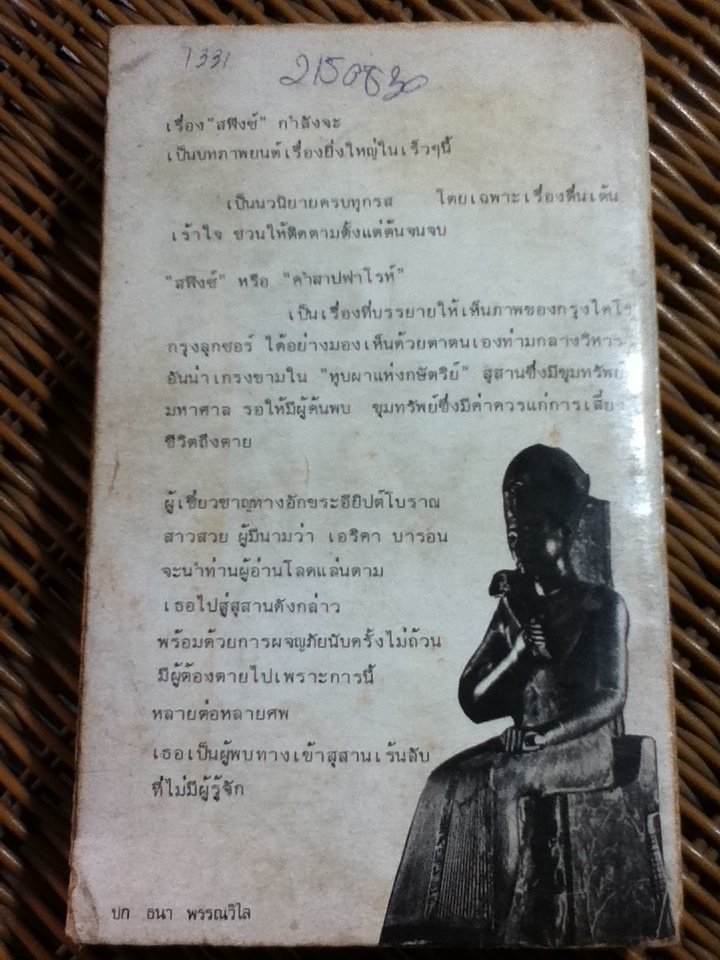 1331
2150830
เรื่อง "สฟิงซ์" กำลังจะ
เป็นบทภาพยนต์เรื่องยิ่งใหญ่ในเร็วๆนี้
เป็นนวนิยายครบทุกรส โดยเฉพาะเรื่องตื่นเต้น
เร้าใจ ชวนให้ติดตามตั้งแต่ต้นจนจบ
"สฟิงซ์" หรือ "คำสาปฟาโรห์"
เป็นเรื่องที่บรรยายให้เห็นภาพของกรุงไคโร
กรุงลุกซอร์ ได้อย่างมองเห็นด้วยตาตนเองท่ามกลางวิหาร
อันน่าเกรงขามใน "หุบผาแห่งกษัตริย์" สุสานซึ่งมีขุมทรัพย์
มหาศาล รอให้มีผู้ค้นพบ ขุมทรัพย์ซึ่งมีค่าควรแก่การเสี่ยง
ชีวิตถึงตาย
ผู้เชี่ยวชาญทางอักขระอียิปต์โบราณ
สาวสวย ผู้มีนามว่า เอริคา บารอน
จะนำท่านผู้อ่านโลดแล่นตาม
เธอไปสู่สุสานดังกล่าว
พร้อมด้วยการผจญภัยนับครั้งไม่ถ้วน
มีผู้ต้องตายไปเพราะการนี้
หลายต่อหลายศพ
เธอเป็นผู้พบทางเข้าสุสานเร้นลับ
ที่ไม่มีผู้รู้จัก
ปก ธนา พรรณวิไล